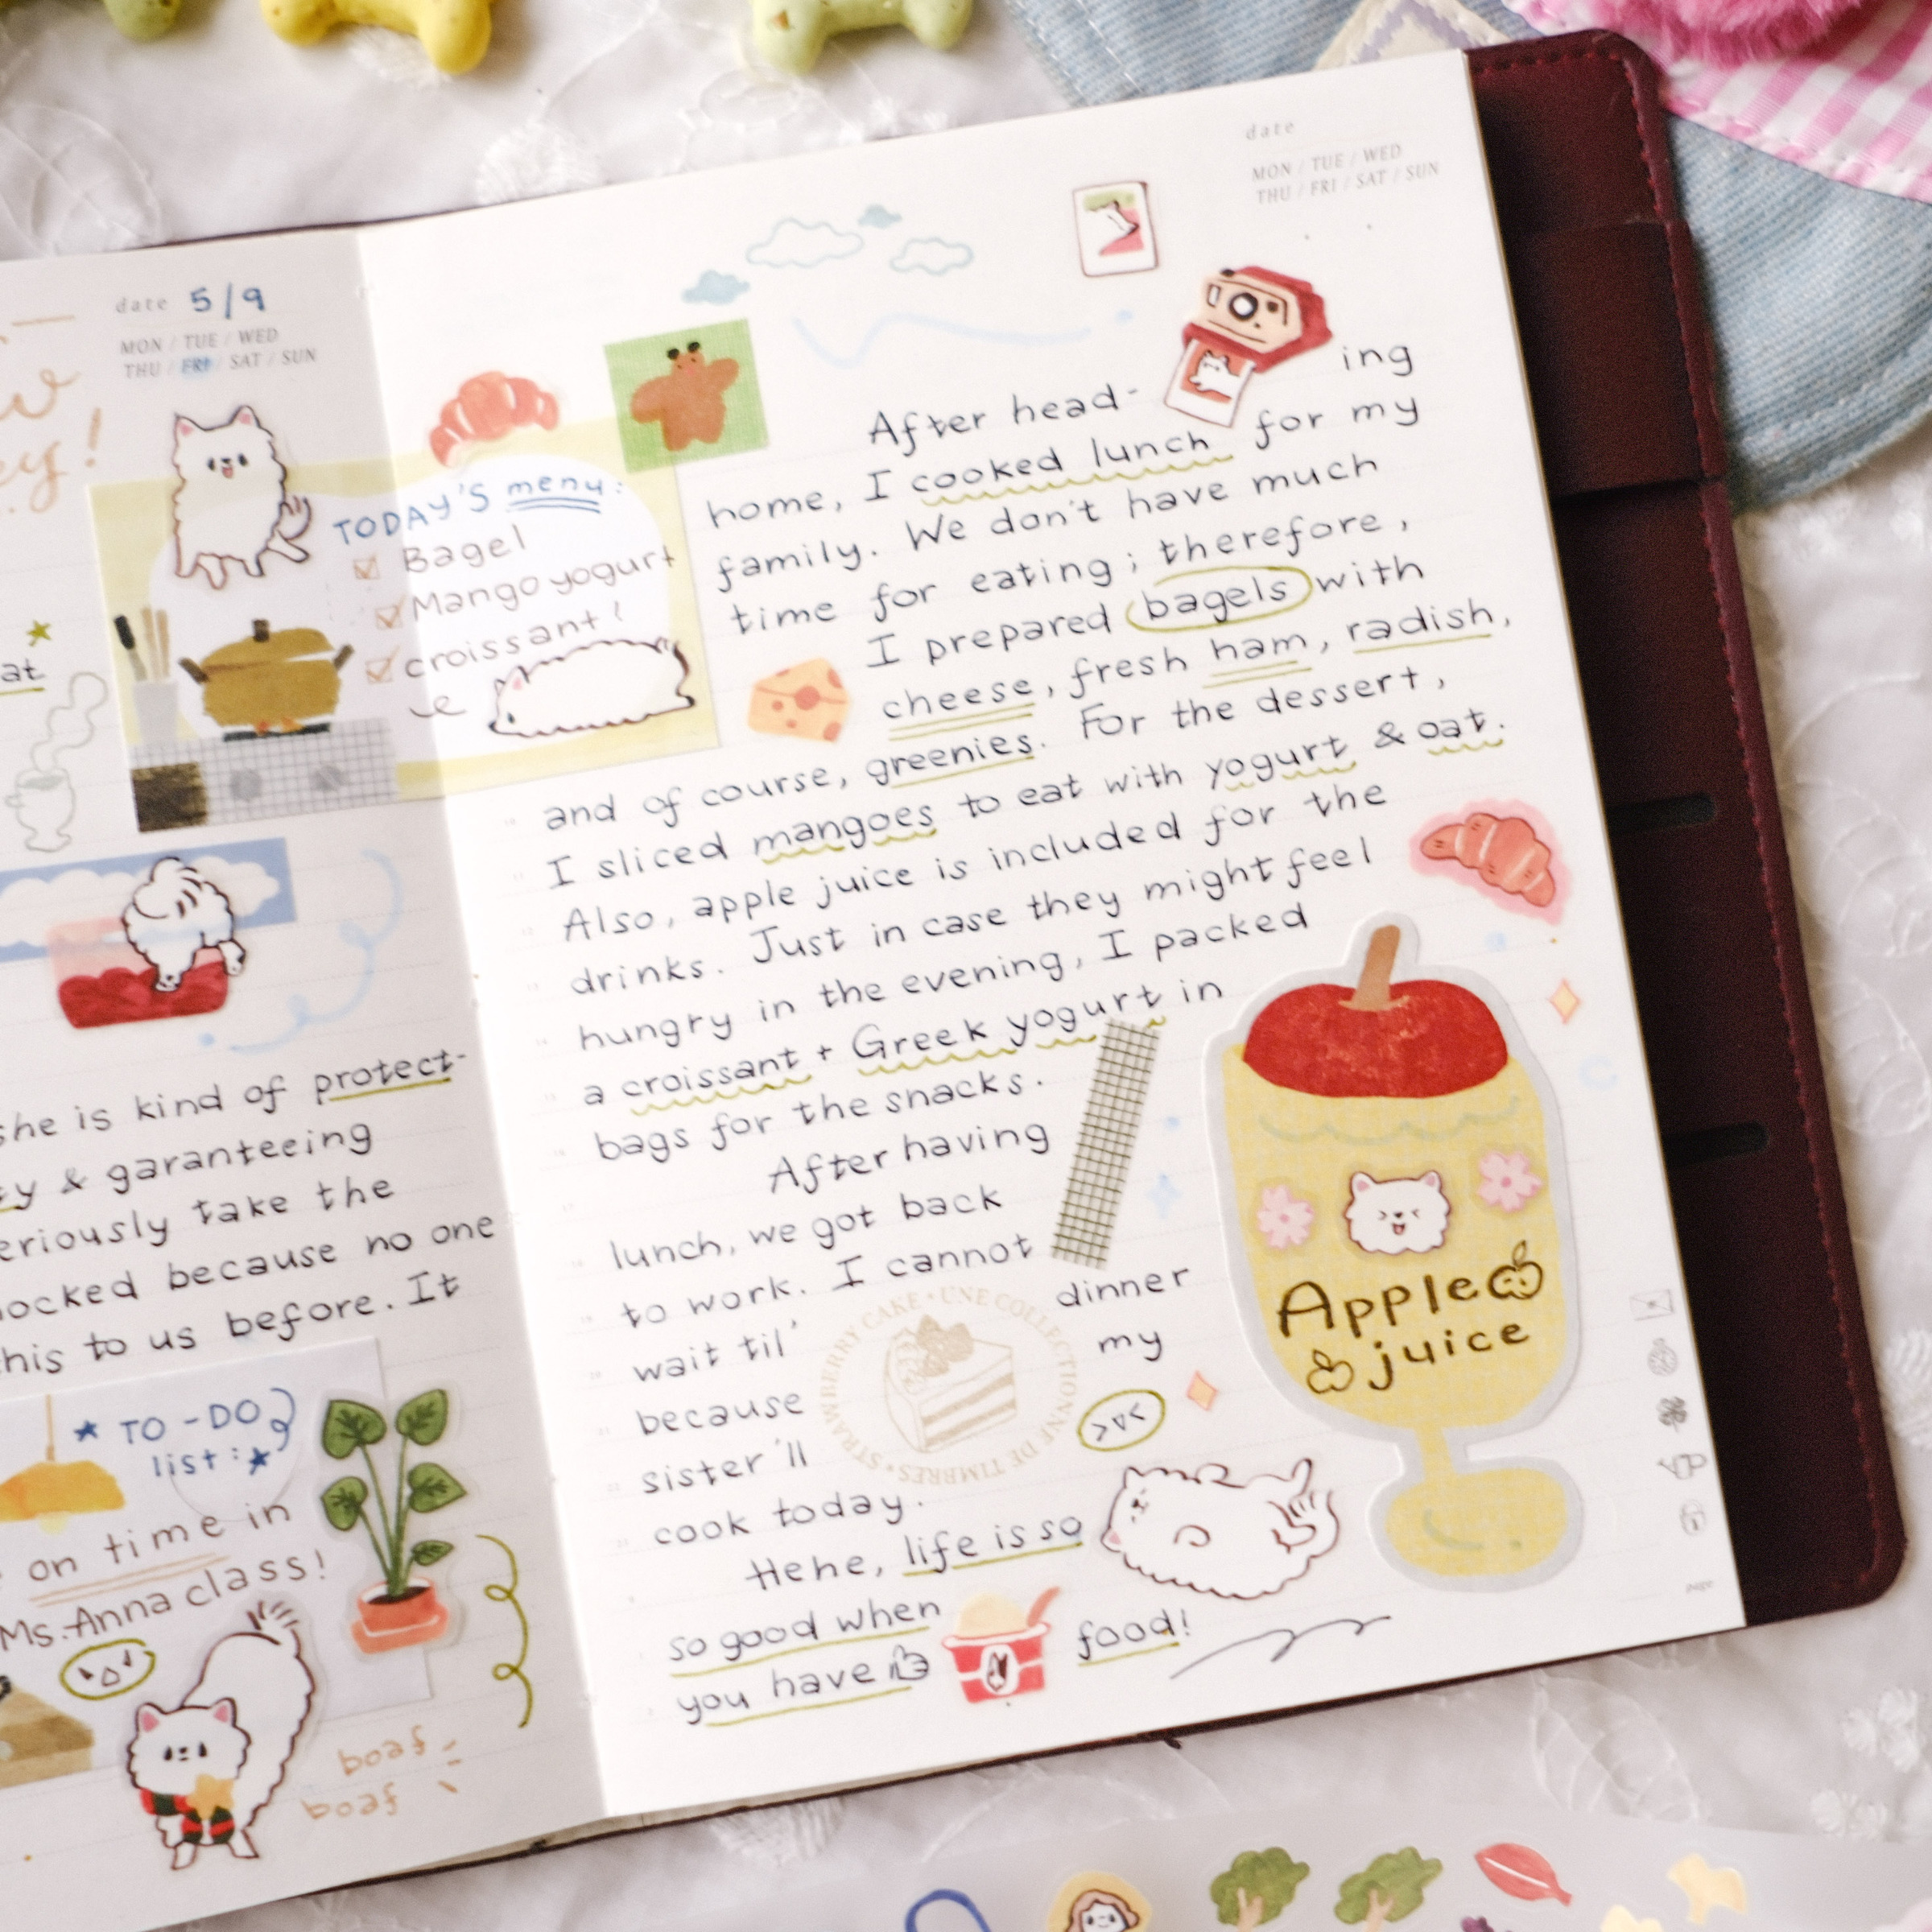 date 5/9
MON / TUE / WED
THU / FRI / SAT / SUN
TODAY'S menu:
Bagel
Mango yogurt
croissant!
at
she is kind of protect-
& garanteeing
take the
because no one
this to us before. It
★ TO-DO
list: ★
on time in
Ms. Anna class!
boaf
boaf
date
MON / TUE / WED
THU / FRI / SAT / SUN
After head-ing
home, I cooked lunch for my
family. We don't have much
time for eating; therefore,
I prepared bagels with
cheese, fresh ham, radish,
and of course, greenies. For the dessert,
I sliced mangoes to eat with yogurt & oat.
Also, apple juice is included for the
drinks. Just in case they might feel
hungry in the evening, I packed
a croissant + Greek yogurt in
bags for the snacks.
After having
lunch, we got back
to work. I cannot
wait til' dinner
because my
sister'll
cook today.
Hehe, life is so
so good when
you have food!
STRAWBERRY CAKE • UNE COLLECTIONNE DE TIMBRES •
Apple
juice
page